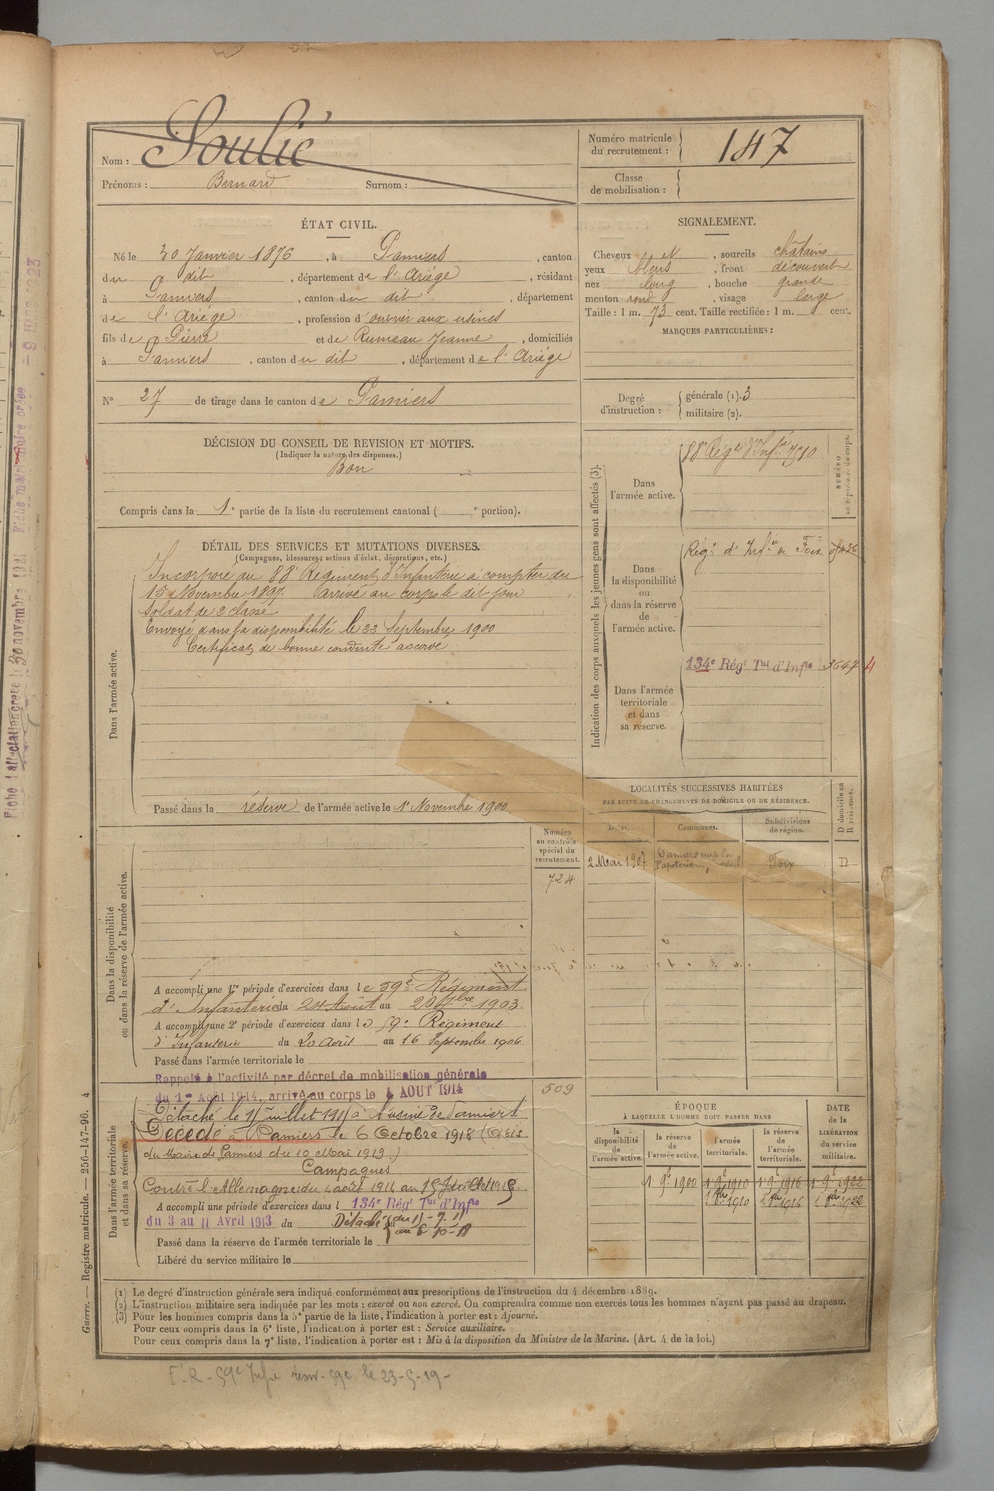 Nom : Soulié
Prénoms : Bernard Surnom :
Numéro matricule du recrutement : 147
Classe de mobilisation :
ÉTAT CIVIL.
Né le 30 Janvier 1876, à Pamiers, canton
du dit, département de l'Ariége, résidant
à Pamiers, canton du dit, département
de l'Ariége, profession d'ouvrier aux usines
fils de Pierre et de Rumeau Jeanne, domiciliés
à Pamiers, canton du dit, département de l'Ariége
N° 27 de tirage dans le canton de Pamiers
SIGNALEMENT.
Cheveux N, sourcils châtains
yeux bleus, front découvert
nez long, bouche grande
menton rond, visage large
Taille : 1 m. 73 cent. Taille rectifiée : 1 m. cent.
MARQUES PARTICULIÈRES :
Degré d'instruction : générale (1). 3
militaire (2).
DÉCISION DU CONSEIL DE REVISION ET MOTIFS.
(Indiquer la nature des dispenses.)
Bon
Compris dans la 1e partie de la liste du recrutement cantonal ( e portion).
DÉTAIL DES SERVICES ET MUTATIONS DIVERSES.
(Campagnes, blessures, actions d'éclat, décorations, etc.)
Dans l'armée active.
Incorporé au 88e Régiment d'Infanterie à compter du
15 Novembre 1897. Arrivé au corps le dit jour
soldat de 2e classe
Envoyé dans la disponibilité le 22 Septembre 1900
Certificat de bonne conduite accordé
Passé dans la réserve de l'armée active le 1er Novembre 1900
Indication des corps auxquels les jeunes gens sont affectés (3).
NUMÉRO
Dans l'armée active.
88e Régt d'Infie
Dans la disponibilité ou dans la réserve de l'armée active.
Régt d'Infie de Foix
Dans l'armée territoriale et dans sa réserve.
134e Régt Tal d'Infie
LOCALITÉS SUCCESSIVES HABITÉES
PAR SUITE DE CHANGEMENTS DE DOMICILE OU DE RÉSIDENCE.
Dates. Communes. Subdivisions de région. D domicile ou R résidence.
2 Mai 1907 Foix D
Dans la disponibilité ou dans la réserve de l'armée active.
Numéro au contrôle spécial du recrutement.
724
A accompli une 1re période d'exercices dans le 59e Régiment
d'Infanterie du 24 Août au 20 7bre 1903.
A accompli une 2e période d'exercices dans le 59e Régiment
d'Infanterie du 20 Août au 16 Septembre 1906
Passé dans l'armée territoriale le
Rappelé à l'activité par décret de mobilisation générale
du 1er Août 1914, arrivé au corps le 4 AOUT 1914
509
Dans l'armée territoriale et dans sa réserve.
Détaché le 11 juillet 1911 à l'usine de Pamiers
Décédé à Pamiers le 6 Octobre 1918 (Avis
du Maire de Pamiers du 10 Mars 1919.)
Campagnes
Contre l'Allemagne: du 4 août 1914 au
A accompli une période d'exercices dans l 134e Régt Tal d'Infie
du 3 au 11 Avril 1913 du Détaché du 11-7-11
au 6-10-18
Passé dans la réserve de l'armée territoriale le
Libéré du service militaire le
ÉPOQUE
À LAQUELLE L'HOMME DOIT PASSER DANS
DATE de la LIBÉRATION du service militaire.
la disponibilité de l'armée active. la réserve de l'armée active. l'armée territoriale. la réserve de l'armée territoriale.
1 9e 1900 1 9e 1910 1 9e 1916 1 9e 1922
1910 1916 1922
(1) Le degré d'instruction générale sera indiqué conformément aux prescriptions de l'instruction du 4 décembre 1889.
(2) L'instruction militaire sera indiquée par les mots : exercé ou non exercé. On comprendra comme non exercés tous les hommes n'ayant pas passé au drapeau.
(3) Pour les hommes compris dans la 5e partie de la liste, l'indication à porter est : Ajourné.
Pour ceux compris dans la 6e liste, l'indication à porter est : Service auxiliaire.
Pour ceux compris dans la 7e liste, l'indication à porter est : Mis à la disposition du Ministre de la Marine. (Art. 4 de la loi.)
Guerre. — Registre matricule. — 256-147-96. 4